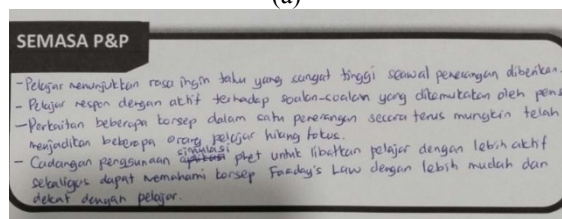 (a)
SEMASA P&P
- Pelajar menunjukkan rasa ingin tahu yang sangat tinggi seawal penerangan diberikan.
- Pelajar respon dengan aktif terhadap soalan-soalan yang dikemukakan oleh pens
- Perkaitan beberapa konsep dalam satu penerangan secara terus mungkin telah
menjadikan beberapa orang pelajar hilang fokus.
- Cadangan penggunaan simulasi phet untuk libatkan pelajar dengan lebih aktif
sekaligus dapat memahami konsep Faraday's Law dengan lebih mudah dan
dekat dengan pelajar.